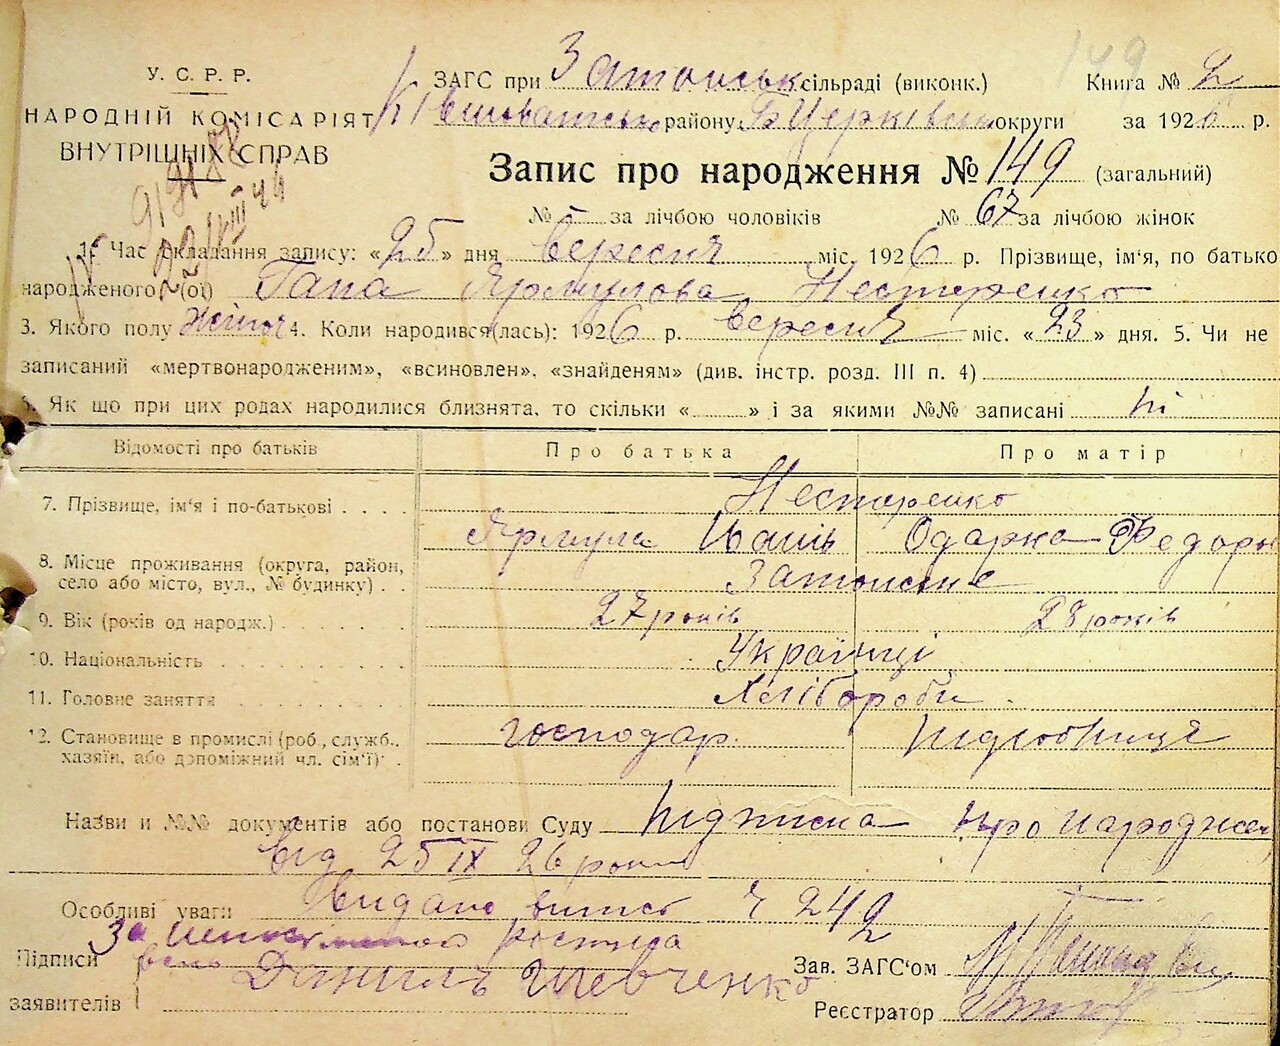 149
У. С. Р. Р.
НАРОДНІЙ КОМІСАРІЯТ
ВНУТРІШНІХ СПРАВ
ЗАГС при Затонськ. сільраді (виконк.) Книга № 2
району Б Церківськ округи за 1926 р.
Запис про народження № 149 (загальний)
№ – за лічбою чоловіків № 67 за лічбою жінок
1. Час складання запису: «25» дня вересня міс. 1926 р. Прізвище, ім'я, по батько
народженого (ої) Гапа Ярмулова Нестеренко
3. Якого полу Жіноч 4. Коли народився(лась): 1926 р. вересня міс. «23» дня. 5. Чи не
записаний «мертвонародженим», «всиновлен», «знайденям» (див. інстр. розд. III п. 4)
6. Як що при цих родах народилися близнята, то скільки « » і за якими №№ записані ні
Відомості про батьків Про батька Про матір
7. Прізвище, ім'я і по-батькові Нестеренко
Ярмула Іванів Одарка Федорів
8. Місце проживання (округа, район,
село або місто, вул., № будинку) Затонське
9. Вік (років од народж.) 27 років 28 років
10. Національність Українці
11. Головне заняття Хлібороби
12. Становище в промислі (роб., служб.,
хазяїн, або допоміжний чл. сім'ї) господар.
Назви и №№ документів або постанови Суду Підписка про народжен
від 25 IX 26 року
Особливі уваги Видано витяг Ч 242
За неписьменного
Підписи Даниль Шевченко Зав. ЗАГС'ом
заявителів Реєстратор